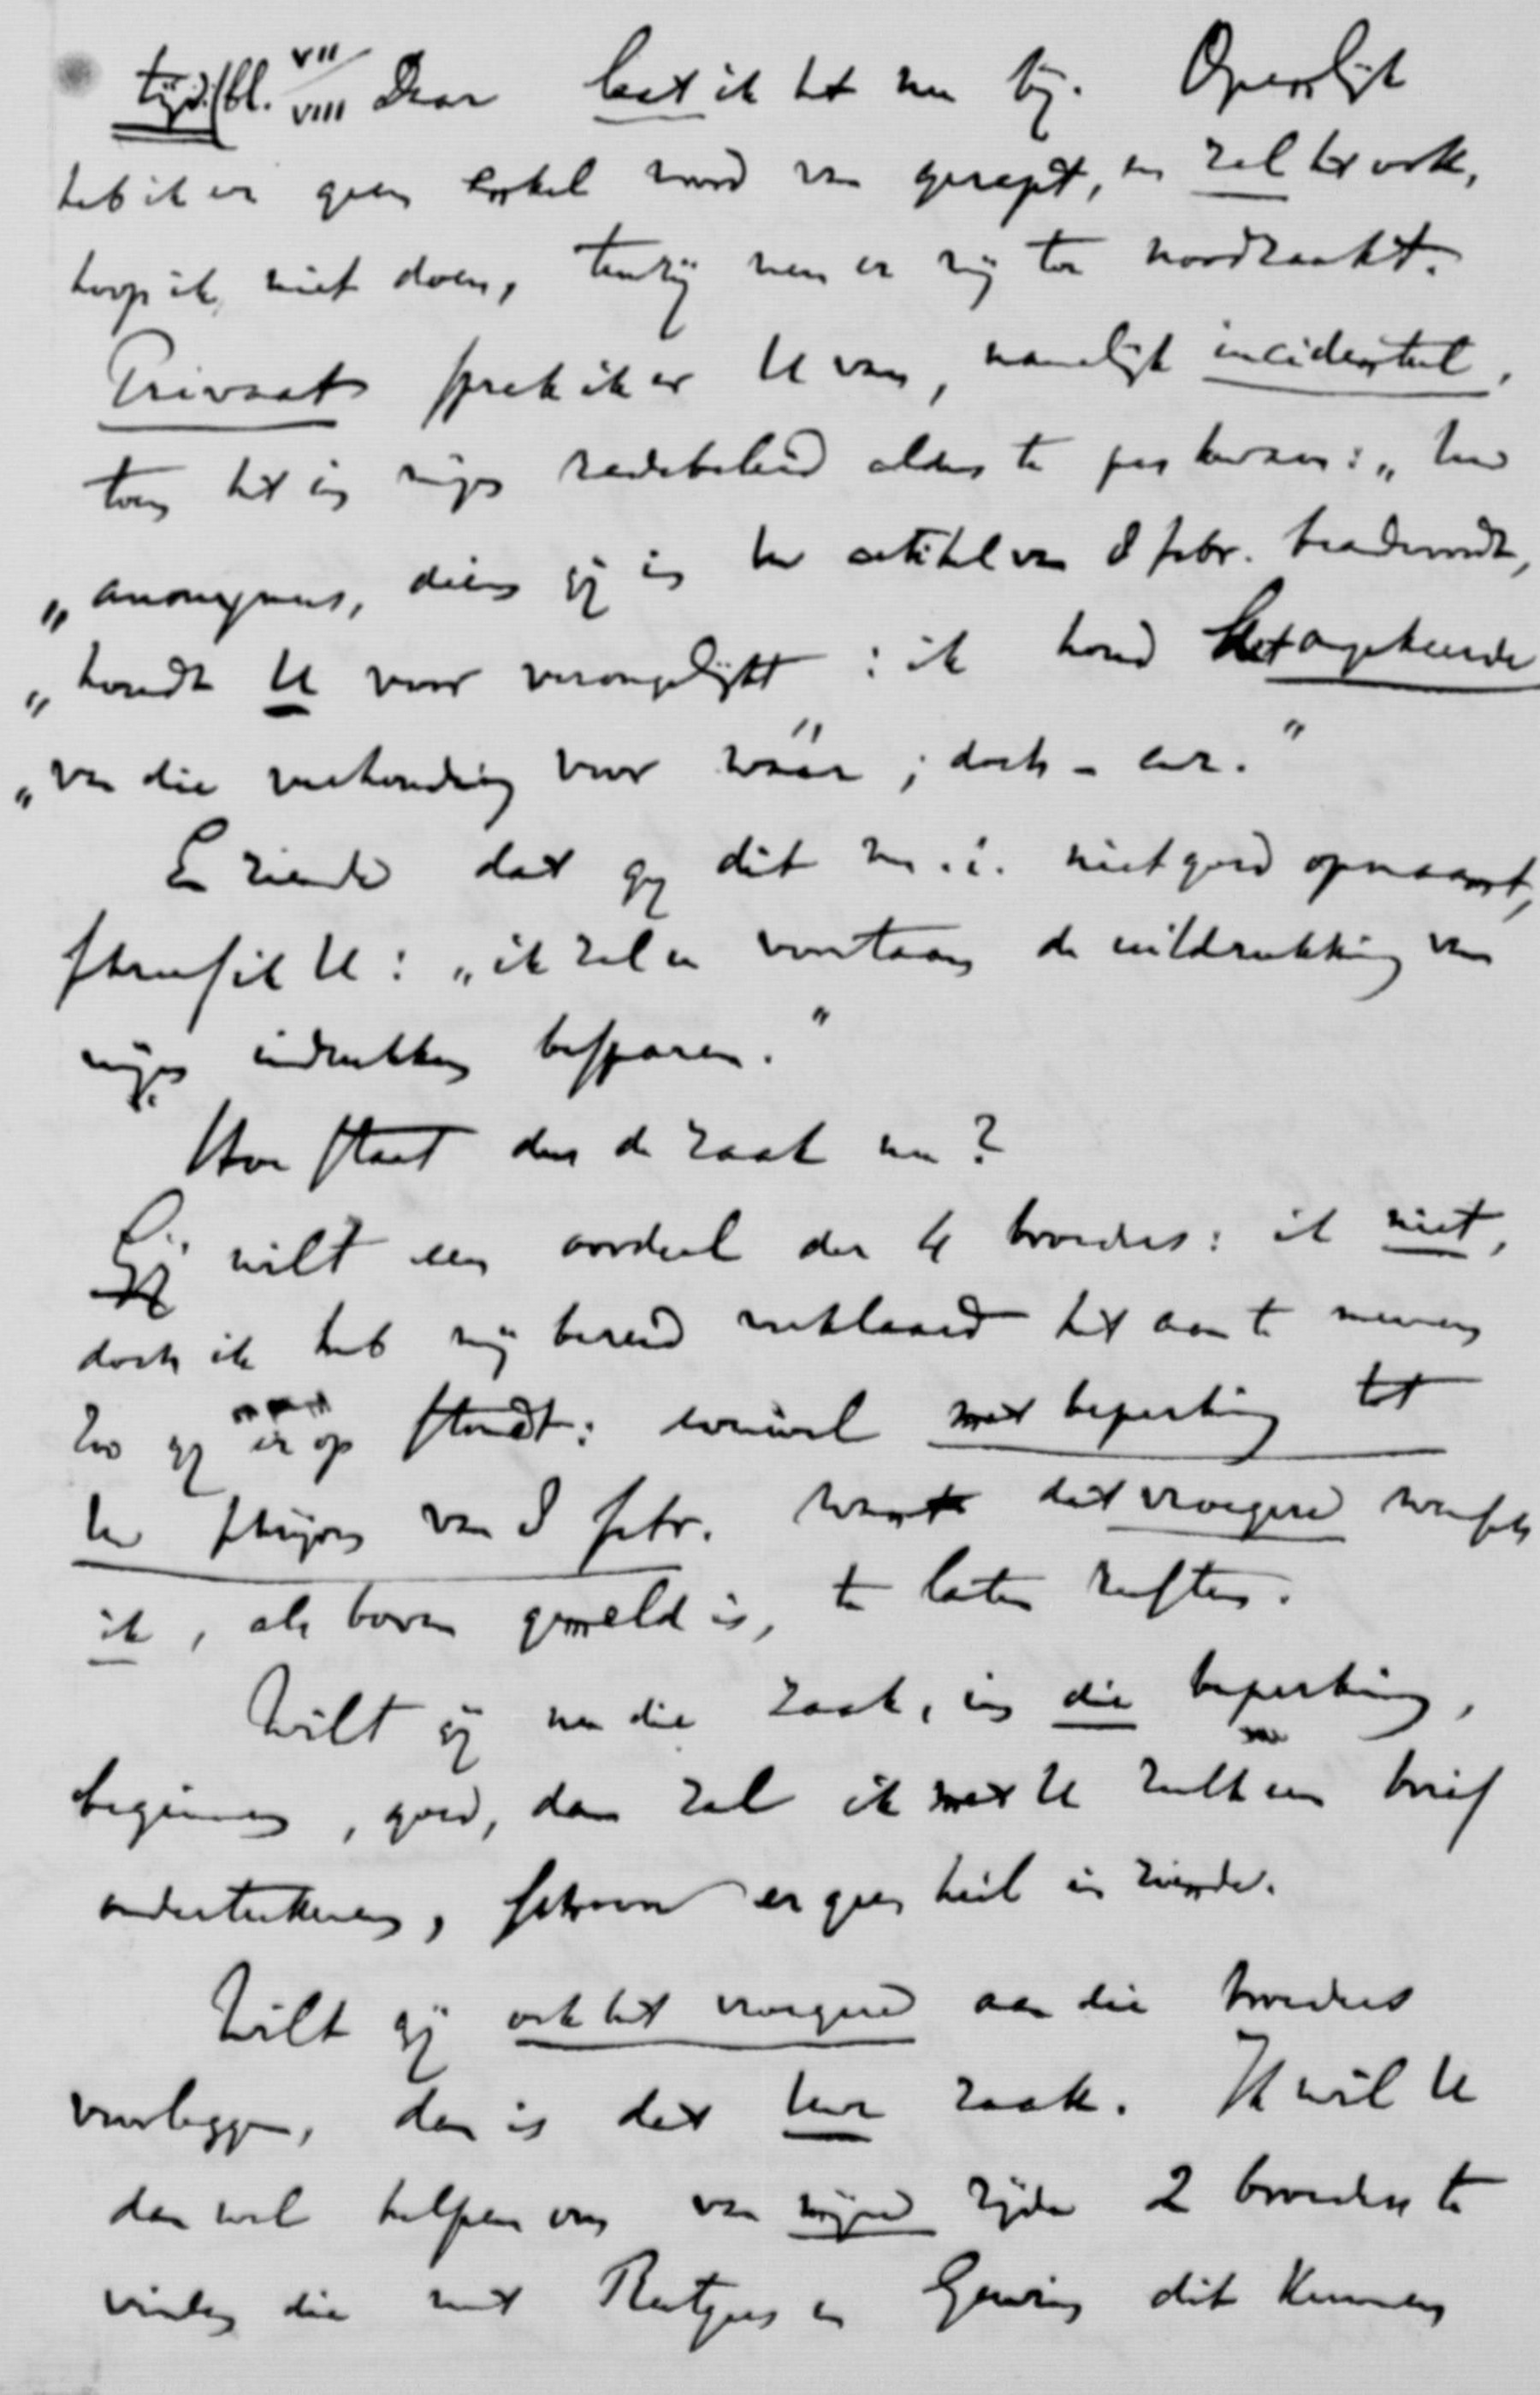 tijd./bl. VII/VIII Daar laat ik het nu bij. Openlijk
heb ik er geen enkel woord van gerept, en zal het ook,
hoop ik, niet doen, tenzij men er mij toe noodzaakt.
Privaat sprak ik er U van, namelijk incidenteel,
toen het in mijn redebeleid aldus te pas kwam: „Uw
„anonymus, dien gij in Uw artikel van 8 febr. beaamdet,
„houdt U voor verongelijkt: ik houd het omgekeerde
„van die verhouding voor waar; doch – enz."
En ziende dat gij dit m.i. niet goed opnaamt,
schreef ik U: „ik zal U voortaan de uitdrukking van
mijn indrukken besparen."
Hoe staat dus de zaak nu?
Gij wilt een oordeel der 4 broeders: ik niet,
doch ik heb mij bereid verklaard het aan te nemen
zoo gij er op stondt: evenwel met beperking tot
Uw schrijven van 8 febr. Want dat vroegere wensch
ik, als boven gemeld is, te laten rusten.
Wilt gij nu die zaak, in die beperking,
beginnen, goed, dan zal ik met U zulk een brief
onderteekenen, schoon er geen heil in ziende.
Wilt gij ook het vroegere aan die broeders
voorleggen, dan is dat Uwe zaak. Ik wil U
dan wel helpen om van mijne zijde 2 broeders te
vinden die met Rutgers en Gewin dit kunnen